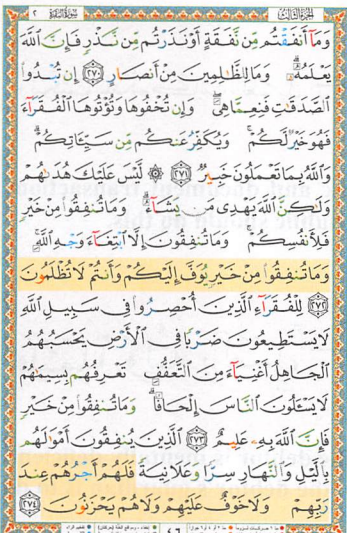 الجزء الثالث سورة البقرة ٢
وَمَآ أَنفَقْتُم مِّن نَّفَقَةٍ أَوْ نَذَرْتُم مِّن نَّذْرٍ فَإِنَّ ٱللَّهَ
يَعْلَمُهُۥ ۗ وَمَا لِلظَّٰلِمِينَ مِنْ أَنصَارٍ ﴿٢٧٠﴾ إِن تُبْدُوا۟
ٱلصَّدَقَٰتِ فَنِعِمَّا هِىَ ۖ وَإِن تُخْفُوهَا وَتُؤْتُوهَا ٱلْفُقَرَآءَ
فَهُوَ خَيْرٌ لَّكُمْ ۚ وَيُكَفِّرُ عَنكُم مِّن سَيِّـَٔاتِكُمْ ۗ
وَٱللَّهُ بِمَا تَعْمَلُونَ خَبِيرٌ ﴿٢٧١﴾ ۞ لَّيْسَ عَلَيْكَ هُدَىٰهُمْ
وَلَٰكِنَّ ٱللَّهَ يَهْدِى مَن يَشَآءُ ۗ وَمَا تُنفِقُوا۟ مِنْ خَيْرٍ
فَلِأَنفُسِكُمْ ۚ وَمَا تُنفِقُونَ إِلَّا ٱبْتِغَآءَ وَجْهِ ٱللَّهِ ۚ
وَمَا تُنفِقُوا۟ مِنْ خَيْرٍ يُوَفَّ إِلَيْكُمْ وَأَنتُمْ لَا تُظْلَمُونَ
﴿٢٧٢﴾ لِلْفُقَرَآءِ ٱلَّذِينَ أُحْصِرُوا۟ فِى سَبِيلِ ٱللَّهِ
لَا يَسْتَطِيعُونَ ضَرْبًا فِى ٱلْأَرْضِ يَحْسَبُهُمُ
ٱلْجَاهِلُ أَغْنِيَآءَ مِنَ ٱلتَّعَفُّفِ تَعْرِفُهُم بِسِيمَٰهُمْ
لَا يَسْـَٔلُونَ ٱلنَّاسَ إِلْحَافًا ۗ وَمَا تُنفِقُوا۟ مِنْ خَيْرٍ
فَإِنَّ ٱللَّهَ بِهِۦ عَلِيمٌ ﴿٢٧٣﴾ ٱلَّذِينَ يُنفِقُونَ أَمْوَٰلَهُم
بِٱلَّيْلِ وَٱلنَّهَارِ سِرًّا وَعَلَانِيَةً فَلَهُمْ أَجْرُهُمْ عِندَ
رَبِّهِمْ وَلَا خَوْفٌ عَلَيْهِمْ وَلَا هُمْ يَحْزَنُونَ ﴿٢٧٤﴾
٤٦